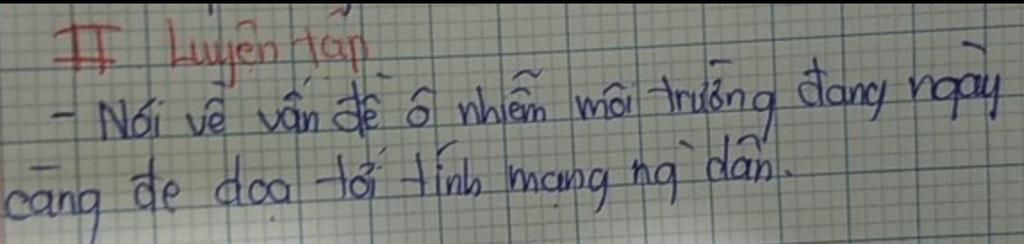 II Luyện tập
- Nói về vấn đề ô nhiễm môi trường đang ngày
càng đe doạ tới tính mạng ng` dân.